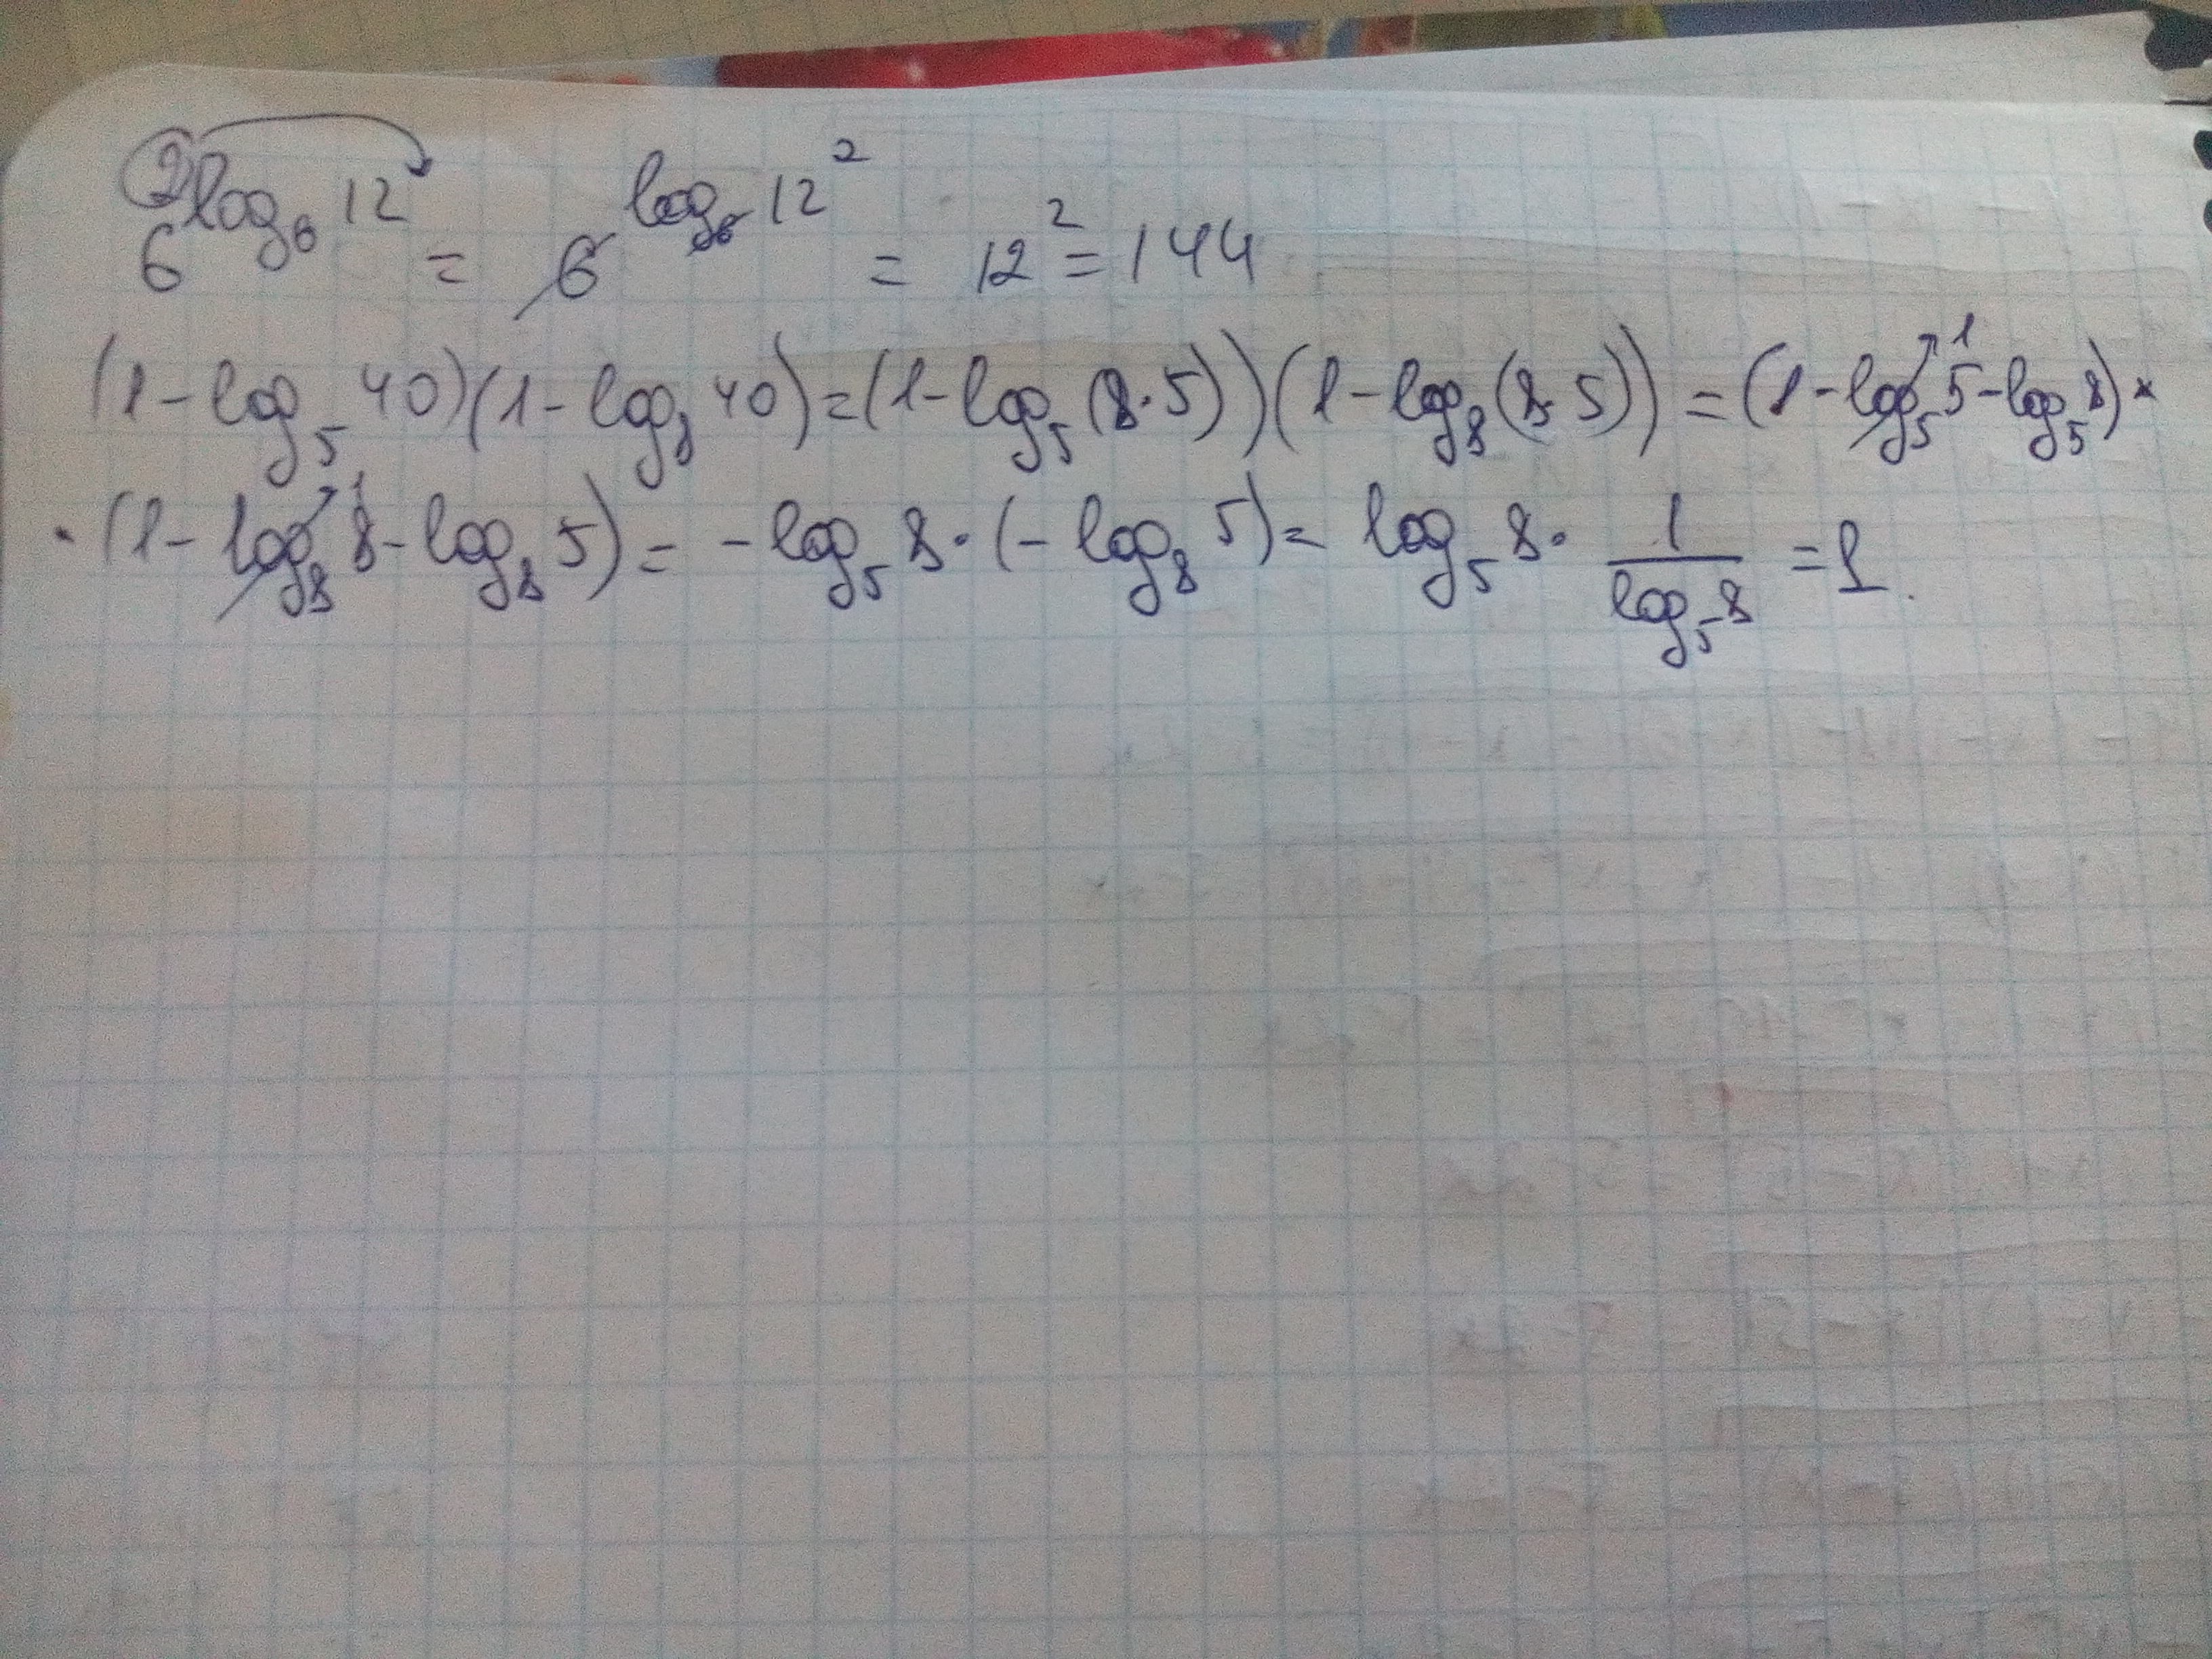 6^{2log_6 12} = 6^{log_6 12^2} = 12^2 = 144
(1-log_5 40)(1-log_8 40)=(1-log_5(8·5))(1-log_8(8·5))=(1-log_5 5^{↗1}-log_5 8)×
·(1-log_8 8^{↗1}-log_8 5)= -log_5 8·(-log_8 5)= log_5 8· \frac{1}{log_5 8} =1.